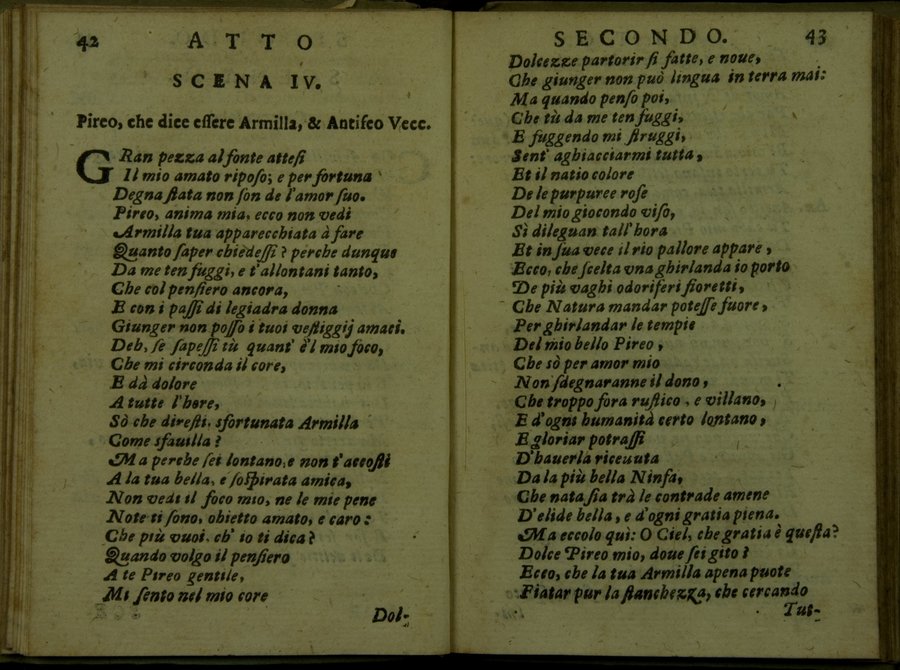 42 ATTO
SCENA IV.
Pireo, che dice essere Armilla, & Antifeo Vecc.
GRan pezza al fonte attesi
Il mio amato riposo; e per fortuna
Degna stata non son de l'amor suo.
Pireo, anima mia, ecco non vedi
Armilla tua apparecchiata à fare
Quanto saper chiedessi? perche dunque
Da me ten fuggi, e t'allontani tanto,
Che col pensiero ancora,
E con i passi di legiadra donna
Giunger non posso i tuoi vestiggij amati.
Deh, se sapessi tù quant' è'l mio foco,
Che mi circonda il core,
E dà dolore
A tutte l'hore,
Sò che diresti, sfortunata Armilla
Come sfauilla?
Ma perche sei lontano, e non t'accosti
A la tua bella, e sospirata amica,
Non vedi il foco mio, ne le mie pene
Note ti sono, obietto amato, e caro:
Che più vuoi, ch' io ti dica?
Quando volgo il pensiero
A te Pireo gentile,
Mi sento nel mio core
Dol-
SECONDO. 43
Dolcezze partorir si fatte, e noue,
Che giunger non può lingua in terra mai:
Ma quando penso poi,
Che tù da me ten fuggi,
E fuggendo mi struggi,
Sent' aghiacciarmi tutta,
Et il natio colore
De le purpuree rose
Del mio giocondo viso,
Sì dileguan tall'hora
Et in sua vece il rio pallore appare,
Ecco, che scelta vna ghirlanda io porto
De più vaghi odoriferi fioretti,
Che Natura mandar potesse fuore,
Per ghirlandar le tempie
Del mio bello Pireo,
Che sò per amor mio
Non sdegnaranne il dono,
Che troppo fora rustico, e villano,
E d'ogni humanità certo lontano,
E gloriar potrassi
D'hauerla riceuuta
Da la più bella Ninfa,
Che nata sia trà le contrade amene
D'elide bella, e d'ogni gratia piena.
Ma eccolo quì: O Ciel, che gratia è questa?
Dolce Pireo mio, doue sei gito?
Ecco, che la tua Armilla apena puote
Fiatar pur la stanchezza, che cercando
Tut-